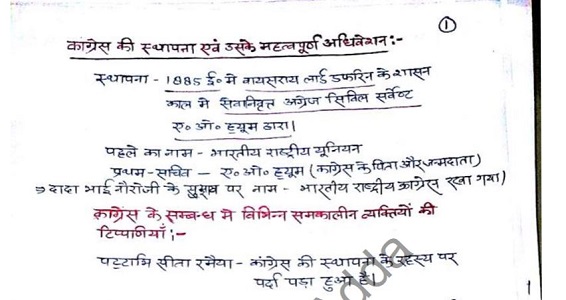 ①
कांग्रेस की स्थापना एवं उसके महत्वपूर्ण अधिवेशन:-
स्थापना - 1885 ई० मे वायसराय लार्ड डफरिन के शासन
काल मे सेवानिवृत्त अंग्रेज सिविल सर्वेण्ट
ए० ओ० ह्यूम द्वारा।
पहले का नाम - भारतीय राष्ट्रीय यूनियन
प्रथम-सचिव - ए० ओ० ह्यूम (कांग्रेस के पिता और जन्मदाता)
⇒ दादा भाई नौरोजी के सुझाव पर नाम - भारतीय राष्ट्रीय कांग्रेस रखा गया)
कांग्रेस के सम्बन्ध मे विभिन्न समकालीन व्यक्तियों की
टिप्पणियाँ:-
पट्टाभि सीता रमैया- कांग्रेस की स्थापना के रहस्य पर
पर्दा पड़ा हुआ है।